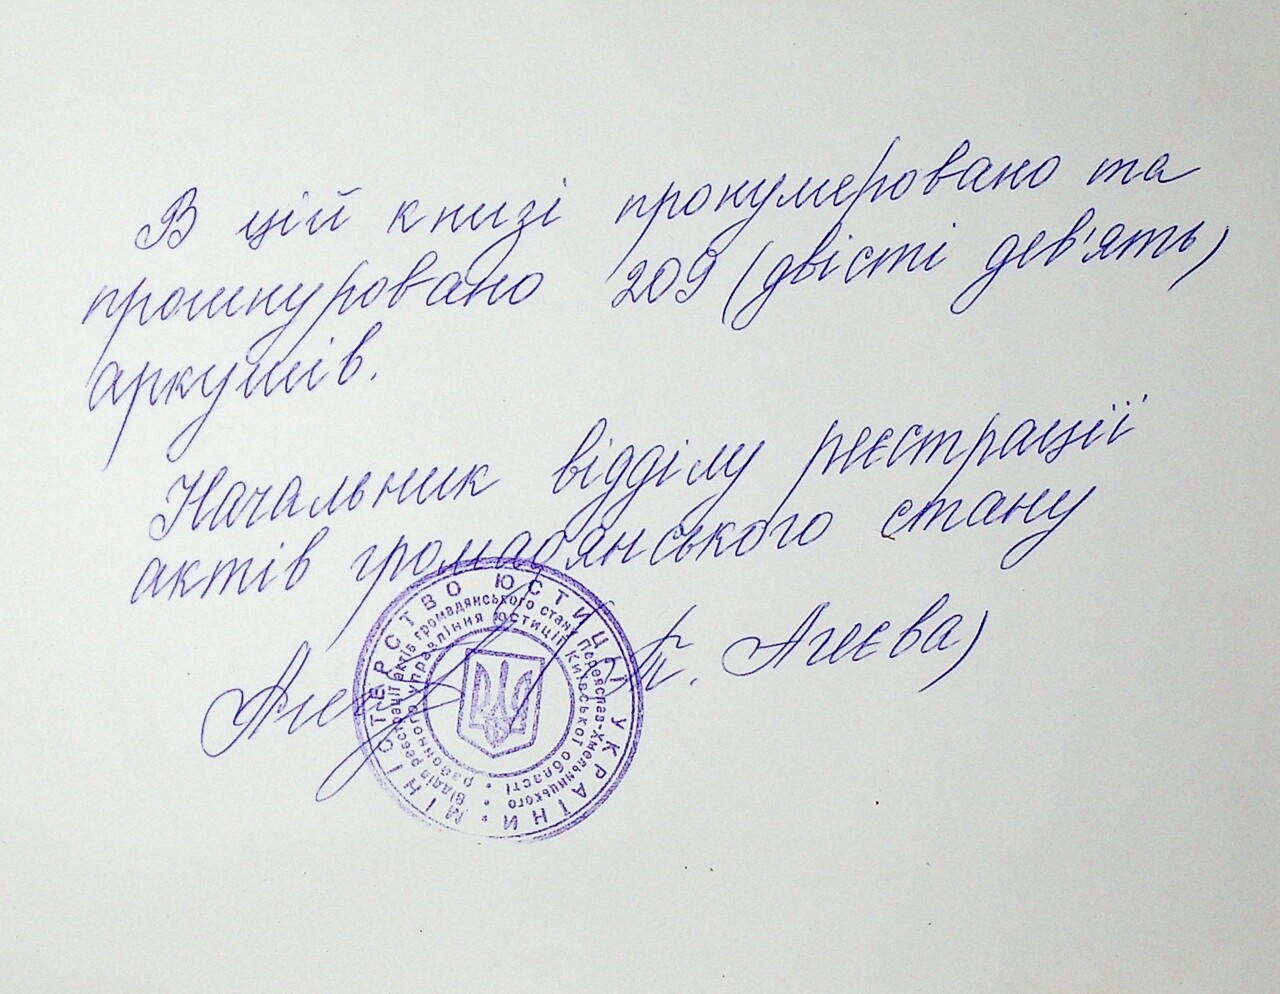 В цій книзі пронумеровано та
прошнуровано 209 (двісті дев'ять)
аркушів.
Начальник відділу реєстрації
актів громадянського стану
Т. Агеєва)
МІНІСТЕРСТВО ЮСТИЦІЇ УКРАЇНИ
Відділ реєстрації актів громадянського стану Переяслав-Хмельницького
районного управління юстиції Київської області